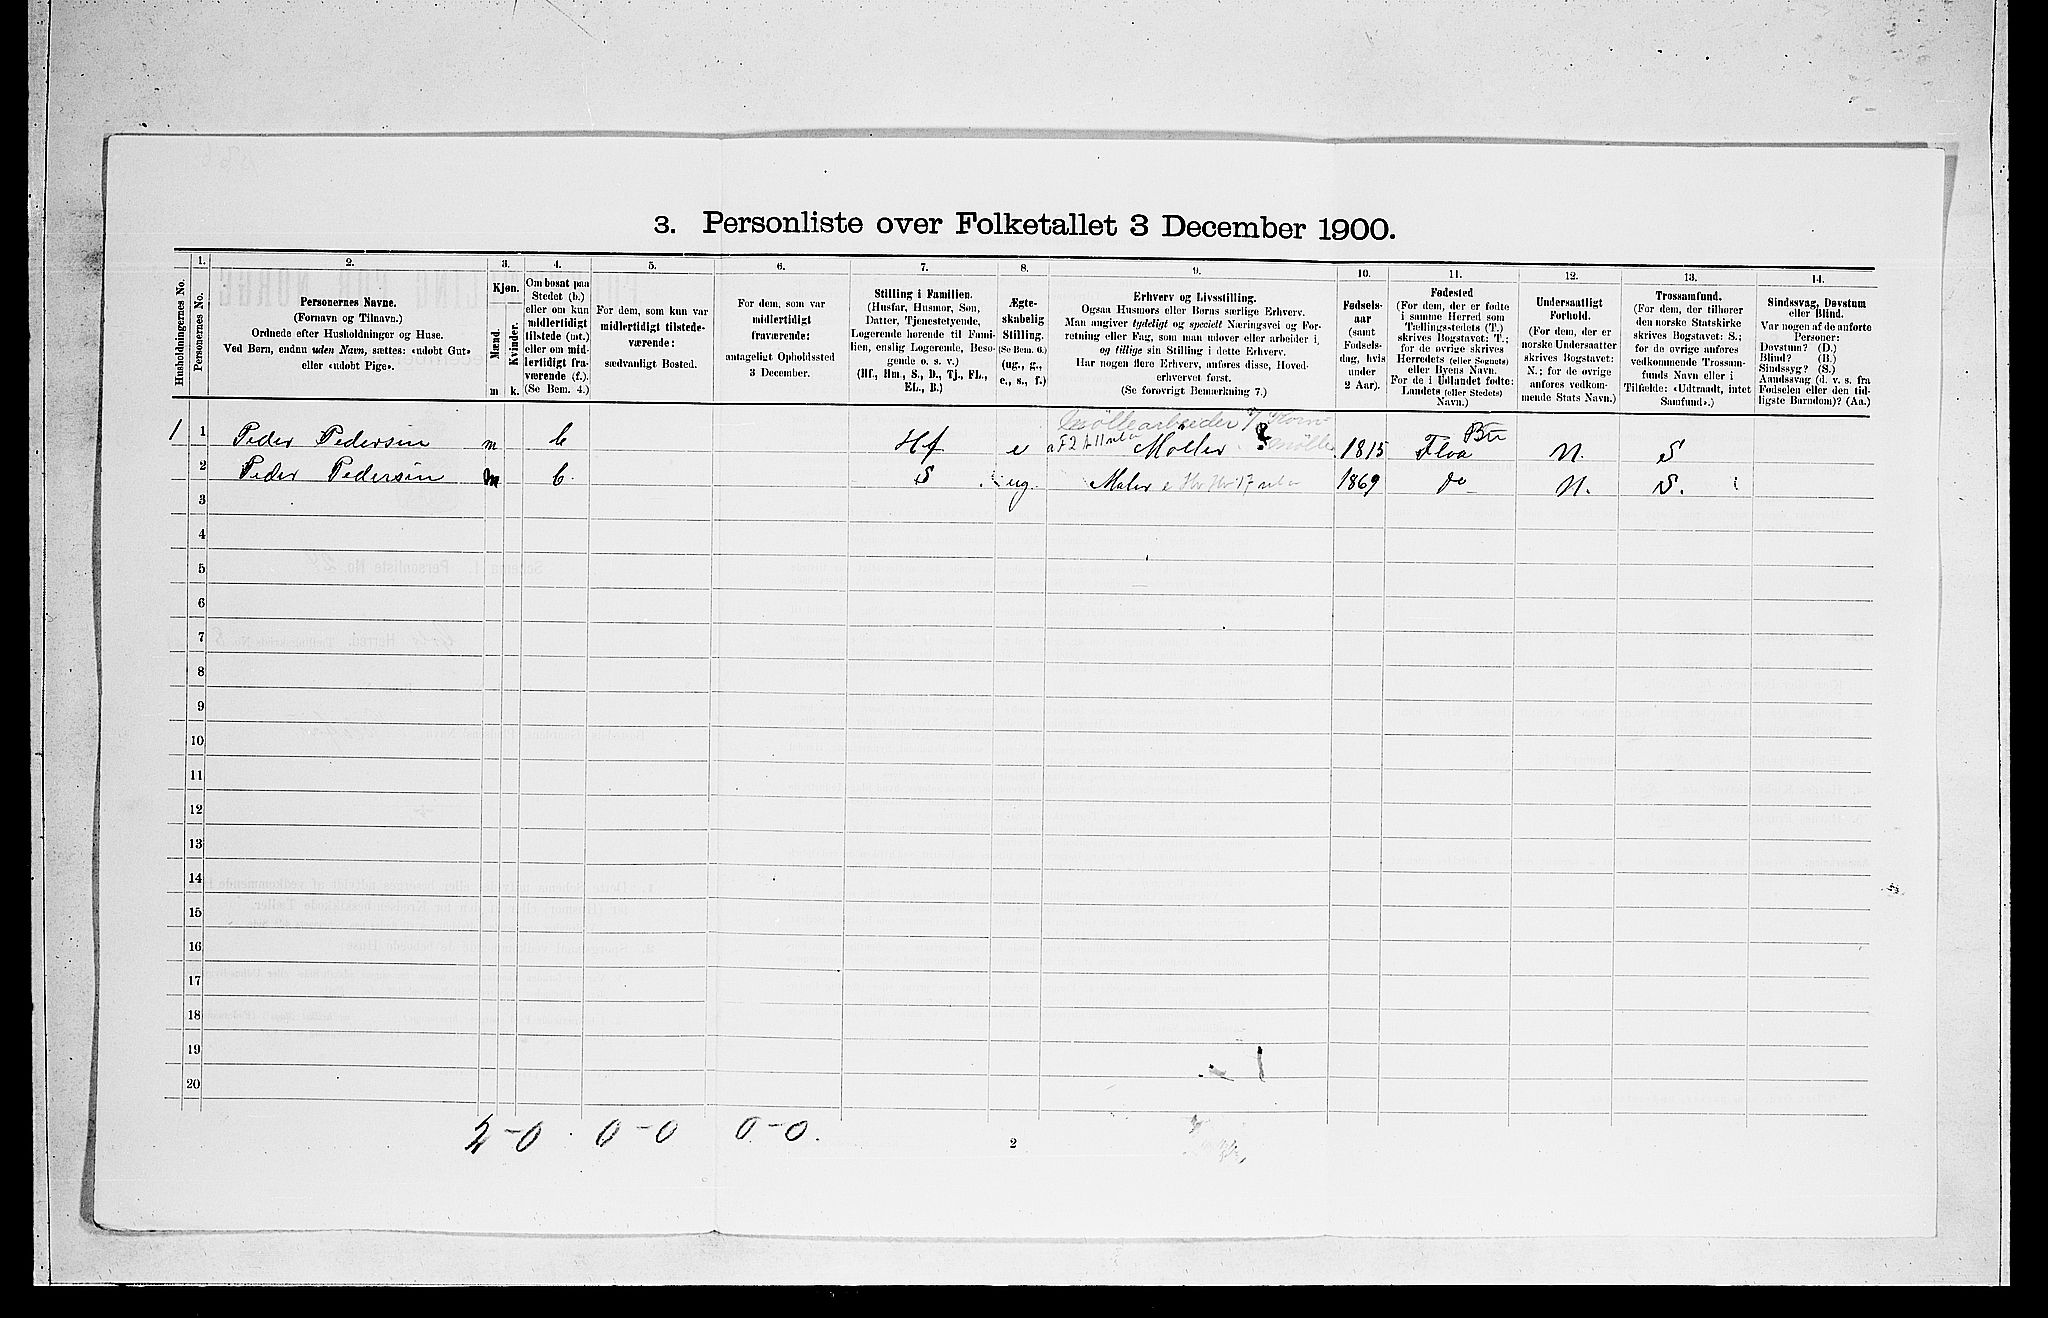 3. Personliste over Folketallet 3 December 1900.
1. 2. 3. 4. 5. 6. 7. 8. 9. 10. 11. 12. 13. 14.
Husholdningernes No.
Personernes No.
Personernes Navne.
(Fornavn og Tilnavn.)
Ordnede efter Husholdninger og Huse.
Ved Børn, endnu uden Navn, sættes: «udøbt Gut»
eller «udøbt Pige».
Kjøn.
Mænd.
Kvinder.
m k.
Om bosat paa
Stedet (b.)
eller om kun
midlertidigt
tilstede (mt.)
eller om mid-
lertidigt fra-
værende (f.).
(Se Bem. 4.)
For dem, som kun var
midlertidigt tilstede-
værende:
sædvanligt Bosted.
For dem, som var
midlertidigt
fraværende:
antageligt Opholdssted
3 December.
Stilling i Familien.
(Husfar, Husmor, Søn,
Datter, Tjenestetyende,
Logerende hørende til Fami-
lien, enslig Logerende, Besø-
gende o. s. v.)
(Hf., Hm., S., D., Tj., FL.,
EL., B.)
Ægte-
skabelig
Stilling.
(Se Bem. 6.)
(ug., g.,
e., s., f.)
Erhverv og Livsstilling.
Ogsaa Husmors eller Børns særlige Erhverv.
Man angiver tydeligt og specielt Næringsvei og For-
retning eller Fag, som man udøver eller arbeider i,
og tillige sin Stilling i dette Erhverv.
Har nogen flere Erhverv, anføres disse, Hoved-
erhvervet først.
(Se forøvrigt Bemærkning 7.)
Fødsels-
aar
(samt
Fødsels-
dag, hvis
under
2 Aar).
Fødested
(For dem, der er fødte
i samme Herred som
Tællingsstedets (T.)
skrives Bogstavet: T.;
for de øvrige skrives
Herredets (eller Sognets)
eller Byens Navn.
For de i Udlandet fødte:
Landets (eller Stedets)
Navn.)
Undersaatligt
Forhold.
(For dem, der er
norske Undersaatter
skrives Bogstavet:
N.; for de øvrige
anføres vedkom-
mende Stats Navn.)
Trossamfund.
(For dem, der tilhører
den norske Statskirke
skrives Bogstavet: S.;
for de øvrige anføres
vedkommende Trossam-
funds Navn eller i
Tilfælde: «Udtraadt, intet
Samfund».)
Sindssvag, Døvstum
eller Blind.
Var nogen af de anførte
Personer:
Døvstum? (D.)
Blind? (B.)
Sindssyg? (S.)
Aandssvag (d. v. s. fra
Fødselen eller den tid-
ligste Barndom)? (Aa.)
Møllearbeider v/ Korn-
mølle
1 1 Peder Pedersen m b Hf e Møller 1815 Flaa Bu N. S
2 Peder Pedersen m b. S ug. Maler 1869 do N. S.
3
4
5
6
7
8
9
10
11
12
13
14
15
16
17
18
19
20
2-0 0-0 0-0.
2